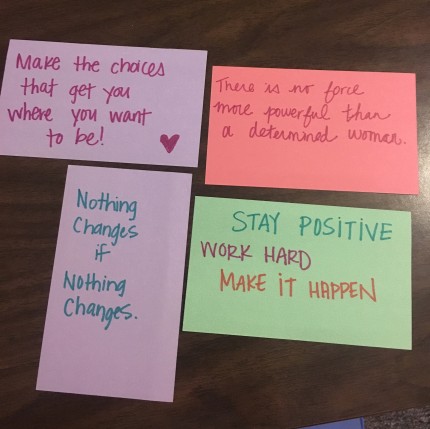 Make the choices
that get you
where you want
to be!
There is no force
more powerful than
a determined woman.
Nothing
Changes
if
Nothing
Changes.
STAY POSITIVE
WORK HARD
MAKE IT HAPPEN